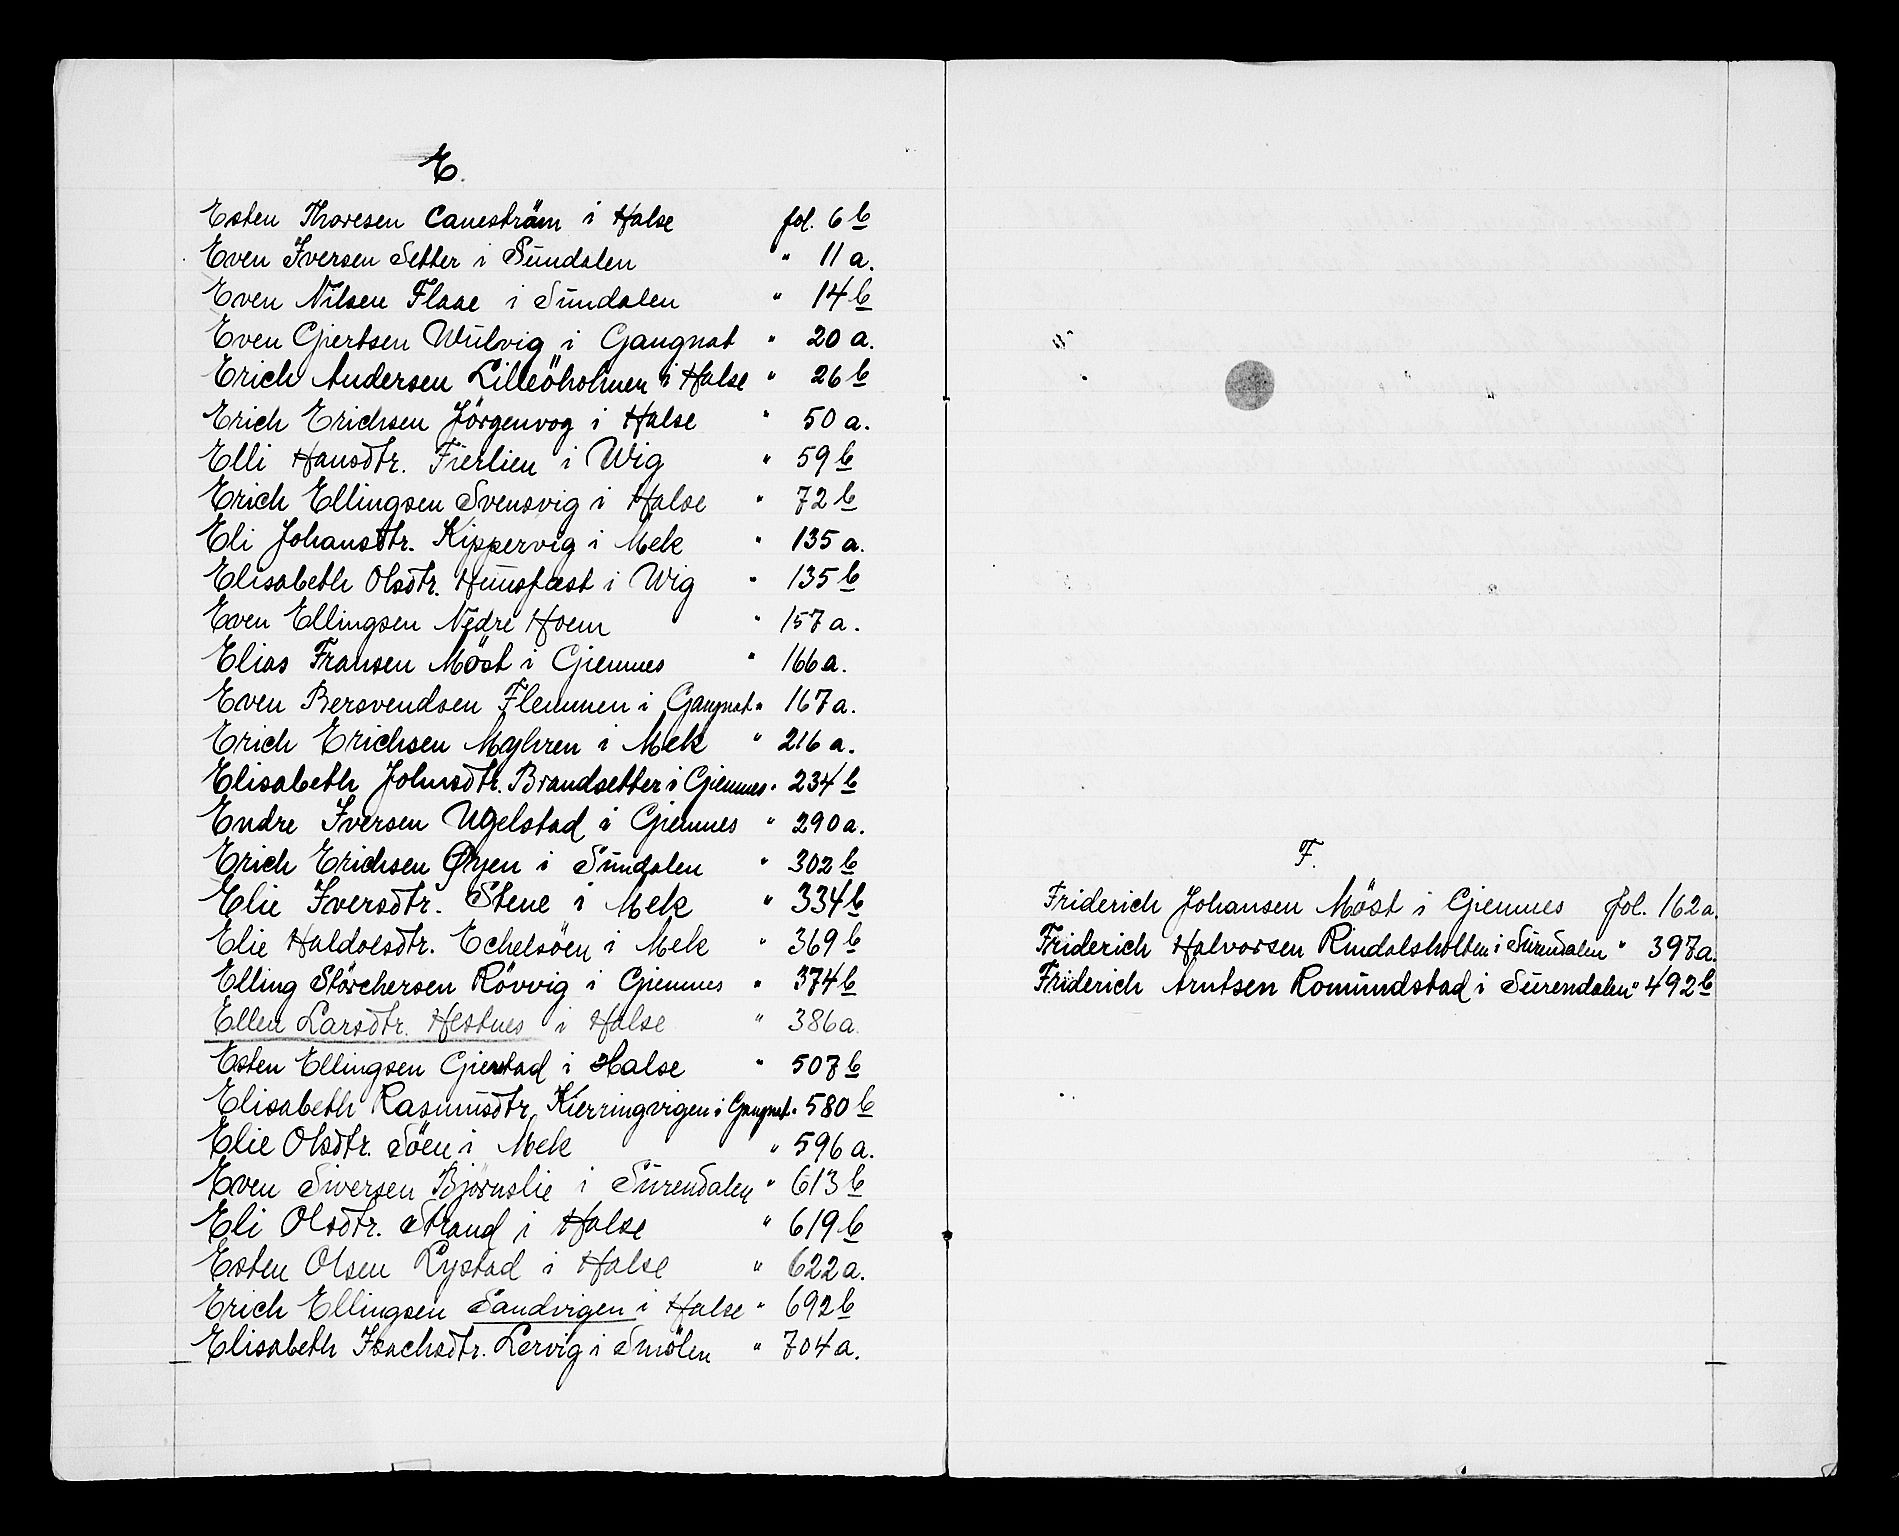 E.
Esten Thoresen Caneström i Halse fol. 6 b
Even Iversen Setter i Sundalen " 11 a.
Even Nilsen Flaae i Sundalen " 14 b
Even Giertsen Wulvig i Gangnat " 20 a.
Erich Andersen Lilleöholmen i Halse " 26 b
Erich Erichsen Jörgenvog i Halse " 50 a.
Elli Hansdtr. Fierlien i Wig " 59 b
Erich Ellingsen Svensvig i Halse " 72 b
Eli Johansdtr. Kippervig i Mek " 135 a.
Elisabeth Olsdtr. Hunsfæst i Wig " 135 b
Even Ellingsen Nedre Hoem " 157 a.
Elias Fransen Möst i Giemnes " 166 a.
Even Bersvendsen Flemmen i Gangnat " 167 a.
Erich Erichsen Myhren i Mek " 216 a.
Elisabeth Johnsdtr. Brandsetter i Giemnes " 234 b
Endre Iversen Ugelstad i Giemnes " 290 a.
Erich Erichsen Øyen i Sundalen " 302 b
Elie Iversdtr. Stene i Mek " 334 b
Elie Haldolsdtr. Echelsöen i Mek " 369 b
Elling Störchersen Rövvig i Giemnes " 374 b
Ellen Larsdtr. Hestnes i Halse " 386 a.
Esten Ellingsen Gierstad i Halse " 507 b
Elisabeth Rasmusdtr. Kierringvigen i Gangnat " 580 b
Elie Olsdtr. Söen i Mek " 596 a.
Even Siversen Björnslie i Surendalen " 613 b
Eli Olsdtr. Strand i Halse " 619 b
Esten Olsen Lystad i Halse " 622 a.
Erich Ellingsen Sandvigen i Halse " 692 b
Elisabeth Isachsdtr. Lervig i Smölen " 704 a.
F.
Friderich Johansen Möst i Giemnes fol. 162 a.
Friderich Halvorsen Rindalsholten i Surendalen " 397 a.
Friderich Arntsen Romundstad i Surendalen " 492 b